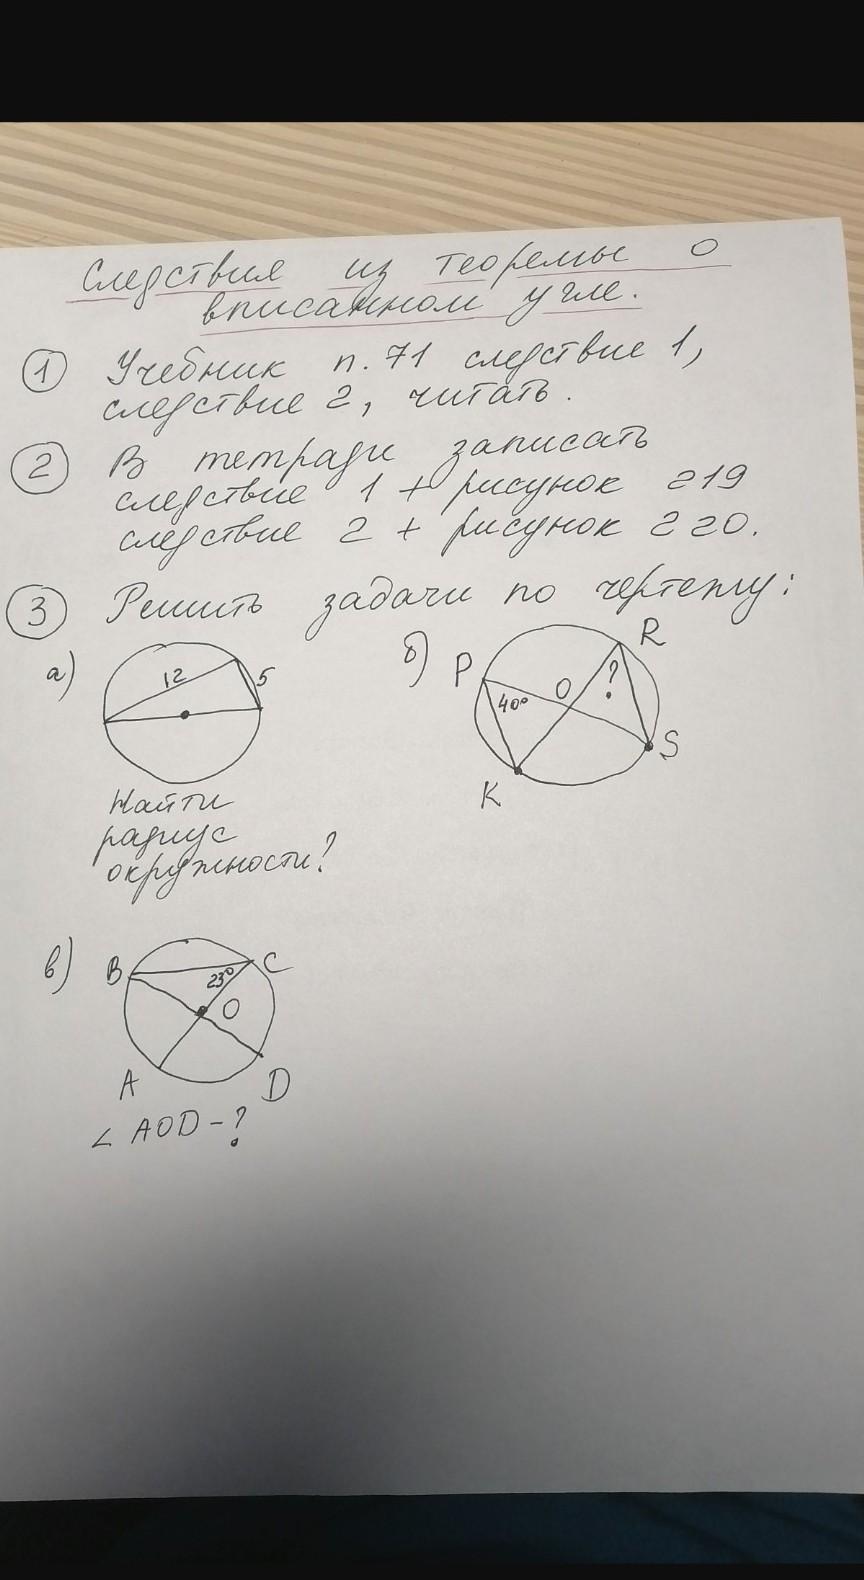 Следствия из теоремы о
вписанном угле.
1 Учебник п. 71 следствие 1,
следствие 2, читать.
2 В тетради записать
следствие 1 + рисунок 219
следствие 2 + рисунок 220.
3 Решить задачи по чертежу:
а) 12 5
Найти
радиус
окружности?
б) P R O ? 40° S K
в) B C 23° O A D
∠ AOD - ?